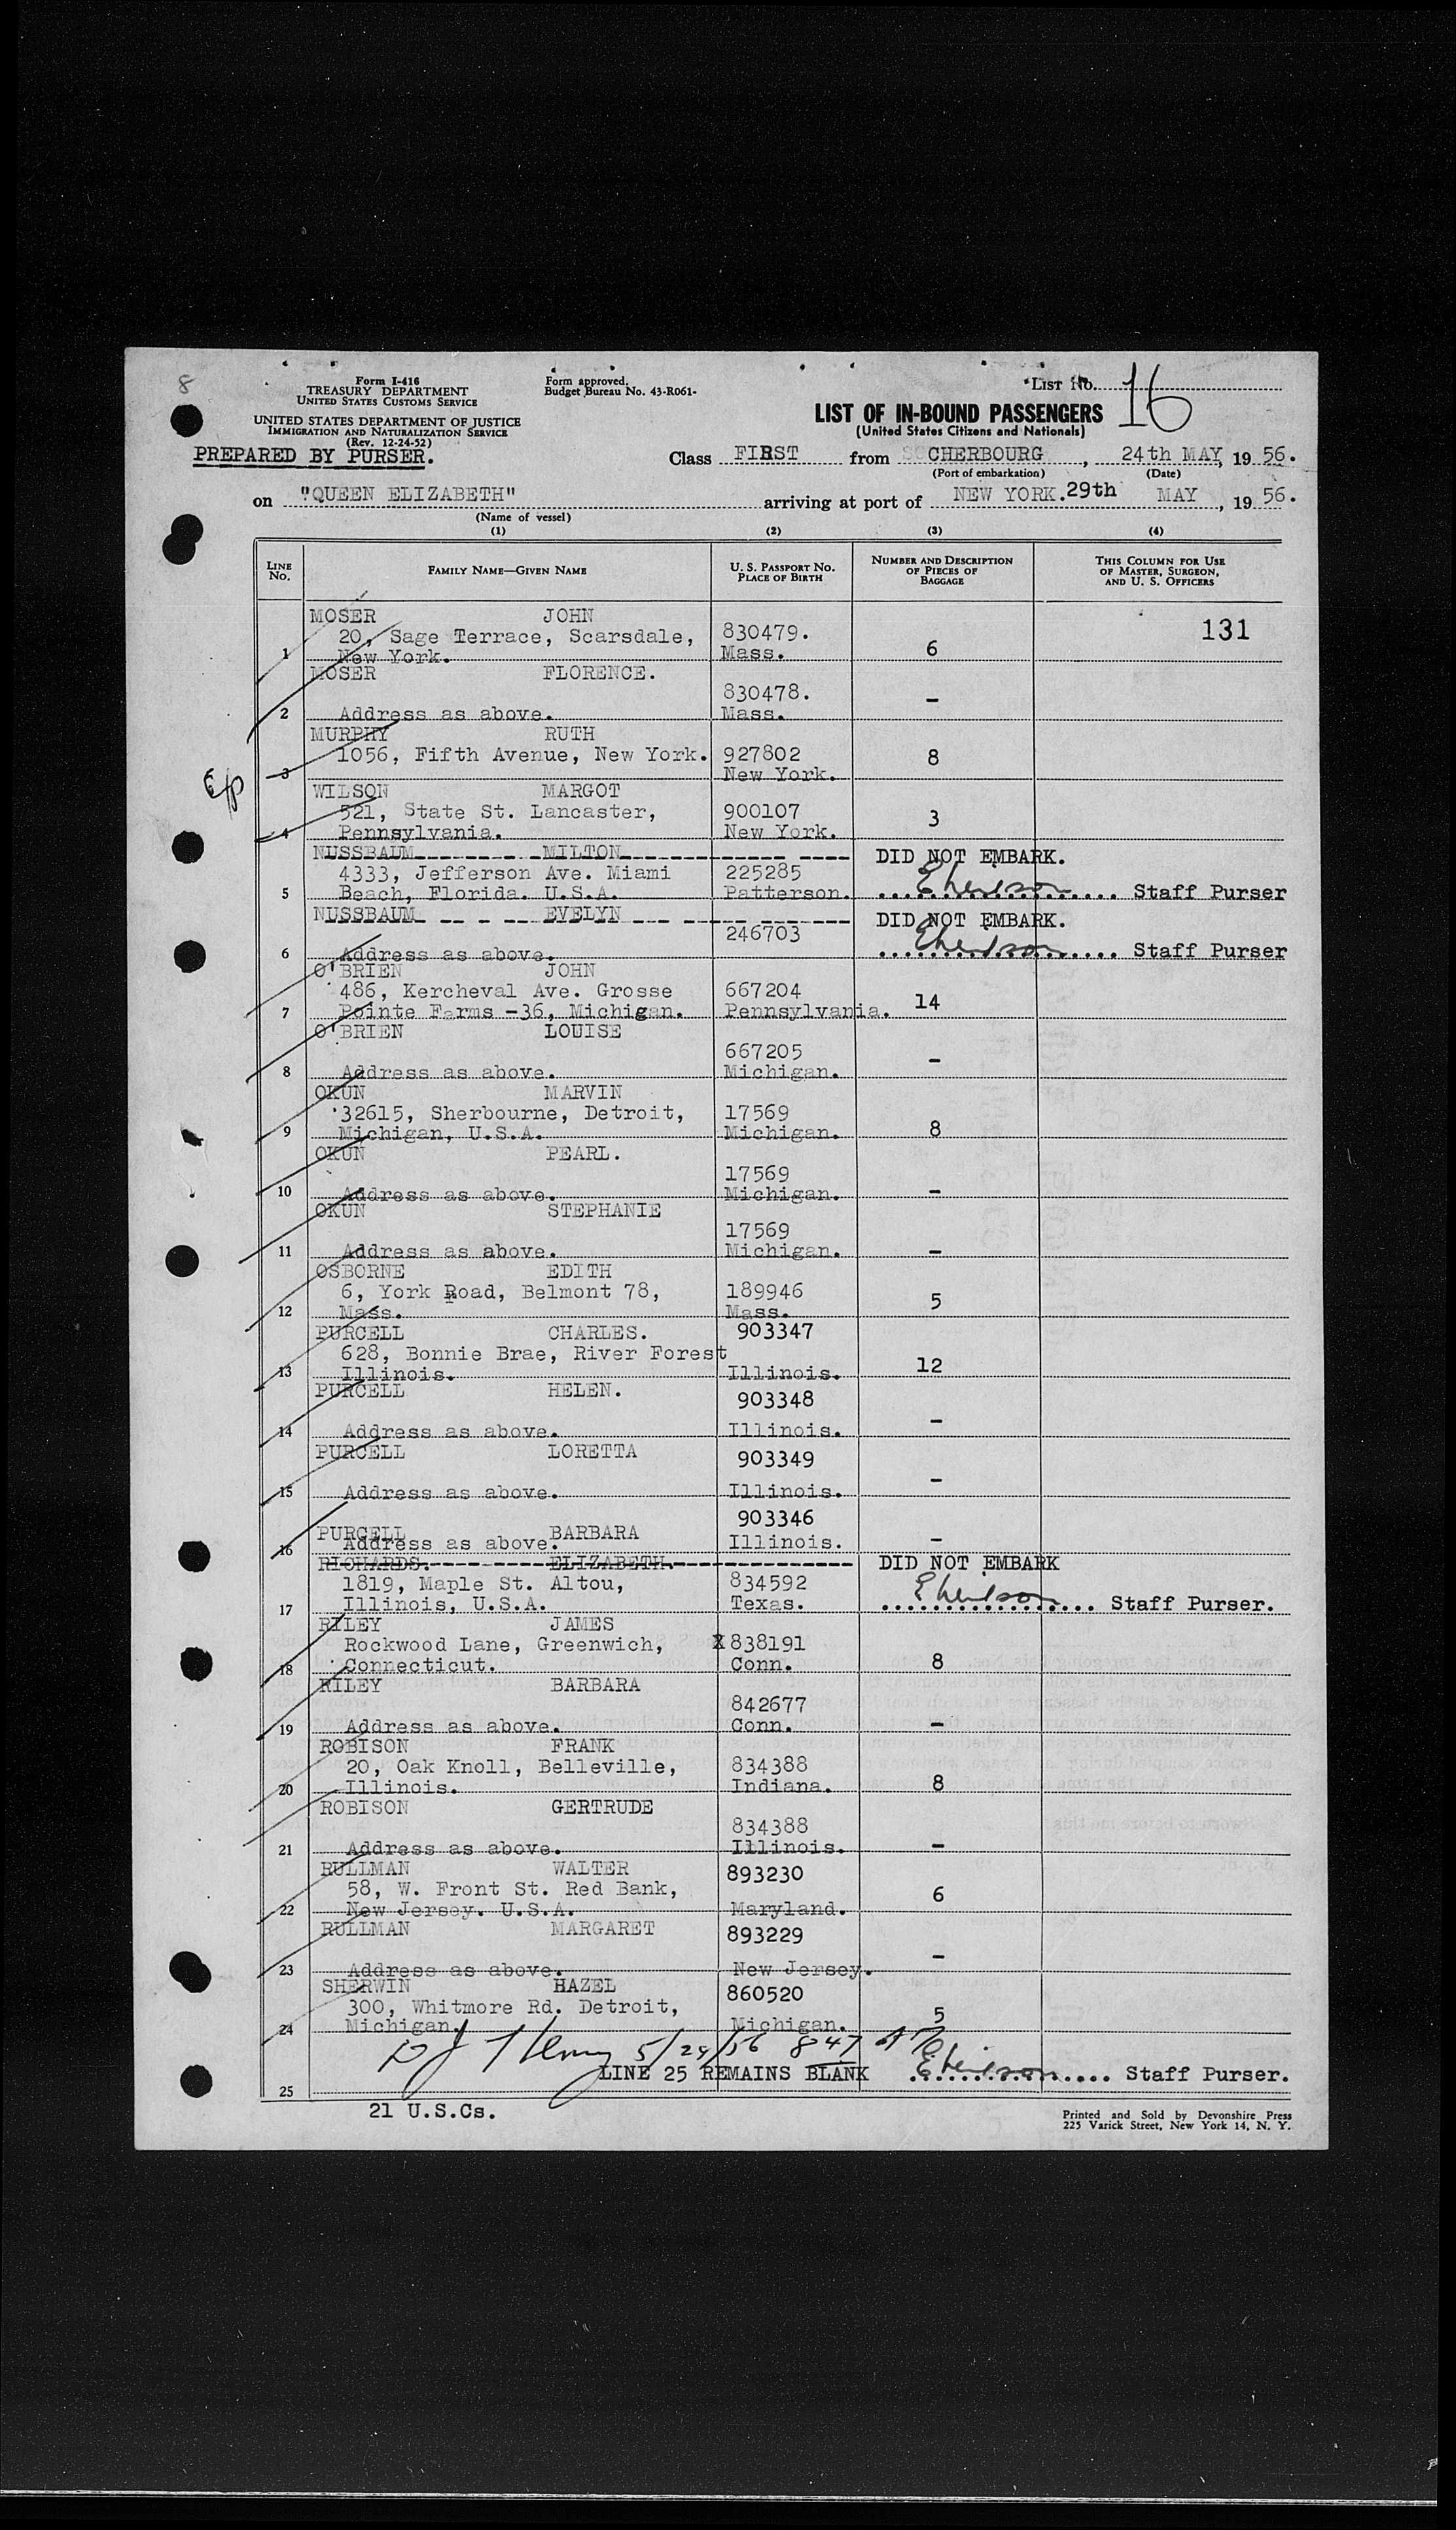 8
Form I-416
TREASURY DEPARTMENT
UNITED STATES CUSTOMS SERVICE
UNITED STATES DEPARTMENT OF JUSTICE
IMMIGRATION AND NATURALIZATION SERVICE
(Rev. 12-24-52)
PREPARED BY PURSER.
Form approved.
Budget Bureau No. 43-R061-
LIST No. 16
LIST OF IN-BOUND PASSENGERS
(United States Citizens and Nationals)
Class FIRST from CHERBOURG, 24th MAY, 19 56.
(Port of embarkation) (Date)
on "QUEEN ELIZABETH" arriving at port of NEW YORK. 29th MAY, 19 56.
(Name of vessel)
(1) (2) (3) (4)
LINE No. FAMILY NAME—GIVEN NAME U. S. PASSPORT NO. PLACE OF BIRTH NUMBER AND DESCRIPTION OF PIECES OF BAGGAGE THIS COLUMN FOR USE OF MASTER, SURGEON, AND U. S. OFFICERS
MOSER JOHN 131
20, Sage Terrace, Scarsdale, 830479.
1 New York. Mass. 6
MOSER FLORENCE.
830478.
2 Address as above. Mass. -
MURPHY RUTH
1056, Fifth Avenue, New York. 927802 8
3 New York.
WILSON MARGOT
521, State St. Lancaster, 900107 3
4 Pennsylvania. New York.
NUSSBAUM MILTON DID NOT EMBARK.
4333, Jefferson Ave. Miami 225285
5 Beach, Florida. U.S.A. Patterson. Staff Purser
NUSSBAUM EVELYN DID NOT EMBARK.
246703
6 Address as above. Staff Purser
O'BRIEN JOHN
486, Kercheval Ave. Grosse 667204 14
7 Pointe Farms -36, Michigan. Pennsylvania.
O'BRIEN LOUISE
667205 -
8 Address as above. Michigan.
OKUN MARVIN
32615, Sherbourne, Detroit, 17569
9 Michigan, U.S.A. Michigan. 8
OKUN PEARL.
17569
10 Address as above. Michigan. -
OKUN STEPHANIE
17569
11 Address as above. Michigan. -
OSBORNE EDITH
6, York Road, Belmont 78, 189946 5
12 Mass. Mass.
PURCELL CHARLES. 903347
628, Bonnie Brae, River Forest
13 Illinois. Illinois. 12
PURCELL HELEN. 903348
14 Address as above. Illinois. -
PURCELL LORETTA 903349
15 Address as above. Illinois. -
903346
PURCELL BARBARA
16 Address as above. Illinois. -
RICHARDS. ELIZABETH. DID NOT EMBARK
1819, Maple St. Altou, 834592
17 Illinois, U.S.A. Texas. Staff Purser.
RILEY JAMES
Rockwood Lane, Greenwich, 838191
18 Connecticut. Conn. 8
RILEY BARBARA
842677
19 Address as above. Conn. -
ROBISON FRANK
20, Oak Knoll, Belleville, 834388
20 Illinois. Indiana. 8
ROBISON GERTRUDE
834388
21 Address as above. Illinois. -
RULLMAN WALTER 893230
58, W. Front St. Red Bank, 6
22 New Jersey. U.S.A. Maryland.
RULLMAN MARGARET 893229
23 Address as above. New Jersey. -
SHERWIN HAZEL 860520
300, Whitmore Rd. Detroit, 5
24 Michigan. Michigan.
5/29/56 847
LINE 25 REMAINS BLANK Staff Purser.
25
21 U.S.Cs.
Printed and Sold by Devonshire Press
225 Varick Street, New York 14, N. Y.